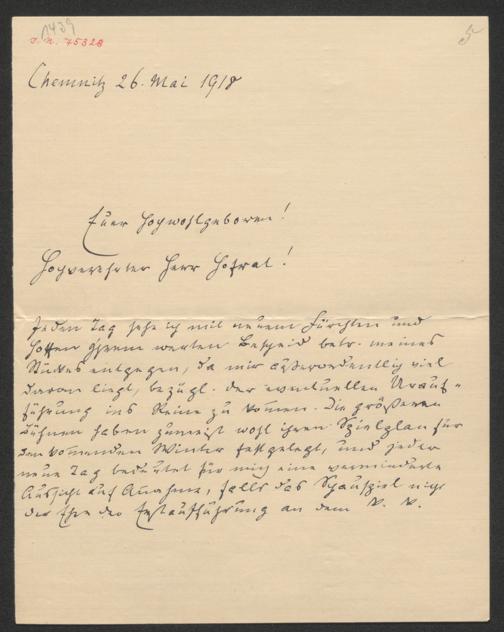 1439
J. N. 75328
Chemnitz 26. Mai 1918
Euer Hochwohlgeboren!
Hochverehrter Herr Hofrat!
Jeden Tag sehe ich mit neuem Fürchten und
Hoffen Ihrem werten Bescheid betr. meines
Stückes entgegen, da mir außerordentlich viel
daran liegt, bezügl. der eventuellen Urauf-
führung ins Reine zu kommen. Die größeren
Bühnen haben zumeist wohl ihren Spielplan für
den kommenden Winter festgelegt, und jeder
neue Tag bedeutet für mich eine verminderte
Aussicht auf Annahme, falls das Schauspiel nicht
der Ehre der Erstaufführung an dem K. K.